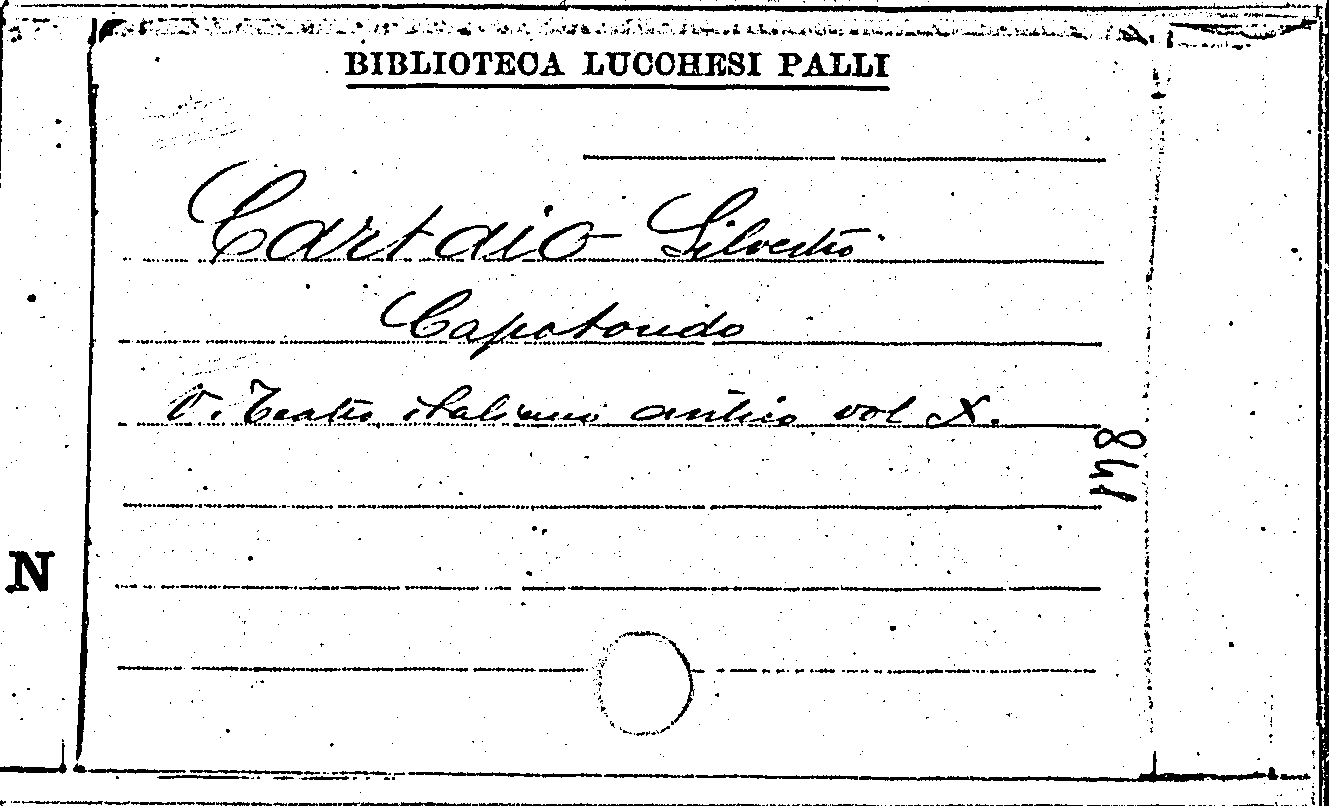 BIBLIOTECA LUCCHESI PALLI
Cartaio Silvestro
Capotondo
V. Teatro italiano antico vol X.
148
N